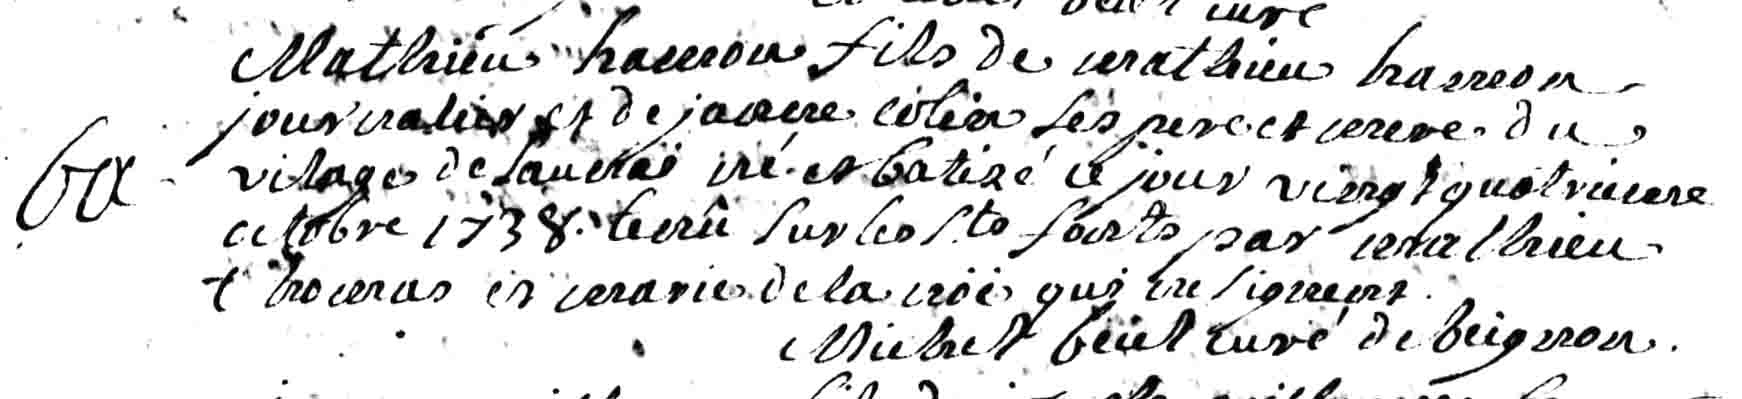 curé
Mathieu hamon fils de mathieu hamon
journalier et de janne colin ses pere et mere du
vilage de launaï né et batizé ce jour vingt quatrieme
octobre 1738. tenû sur les sts fonts par mathieu
thomas et marie de la noë qui ne signent.
Michel beçel curé de beignon.